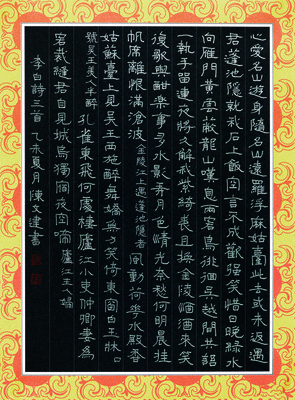 心愛名山遊身隨名山遠羅浮麻姑臺此去或未返遇
君蓬池隱就我石上飯空言不成歡強笑惜日晚綠水
向雁門黃雲蔽龍山嘆息兩客鳥徘徊吳越間共語
一執手留連夜將久解我紫綺裘且換金陵酒酒來笑
復歌興酣樂事多水影弄月色清光奈愁何明晨挂
帆席離恨滿滄波 金陵江上遇蓬池隱者 風動荷花水殿香
姑蘇臺上見吳王西施醉舞嬌無力笑倚東窗白玉牀 口
號吳王美人半醉 孔雀東飛何處棲廬江小吏仲卿妻為
客裁縫君自見城烏獨宿夜空啼 廬江主人婦
李白詩三首 乙未夏月陳文書